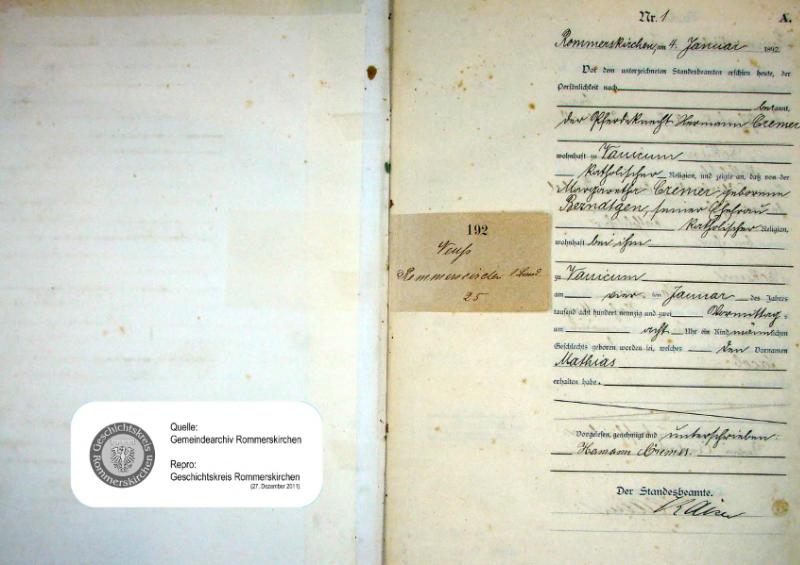 Geschichtskreis
Rommerskirchen
Quelle:
Gemeindearchiv Rommerskirchen
Repro:
Geschichtskreis Rommerskirchen
(27. Dezember 2011)
192
Neuß
25
Nr. 1
A.
Rommerskirchen, am 4. Januar 1892
Vor dem unterzeichneten Standesbeamten erschien heute, der
Persönlichkeit nach
bekannt,
der Pferdeknecht Hermann Cremer
wohnhaft zu Vanicum
katholischer Religion, und zeigte an, daß von der
Margaretha Cremer geborenen
Berndtgen, seiner Ehefrau
katholischer Religion,
wohnhaft bei ihm
zu Vanicum
am vier ten Januar des Jahres
tausend acht hundert neunzig und zwei Vormittag s
um acht Uhr ein Kind männlichen
Geschlechts geboren worden sei, welches den Vornamen
Mathias
erhalten habe.
Vorgelesen, genehmigt und unterschrieben
Hamann Cremer
Der Standesbeamte.